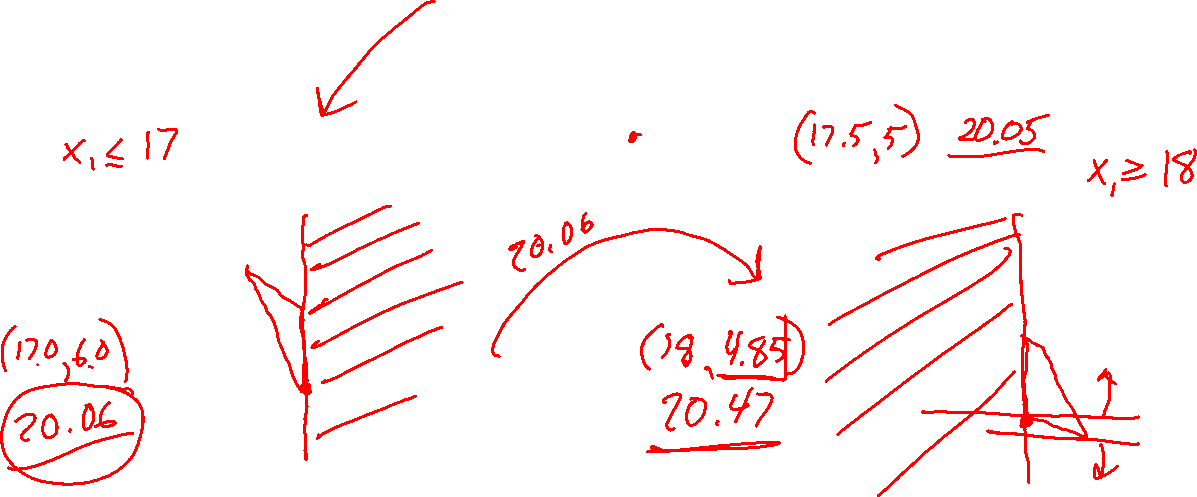 x₁ ≤ 17
(17.5, 5) 20.05
x₁ ≥ 18
20.06
(17.0, 6.0)
20.06
(18, 4.85)
20.47